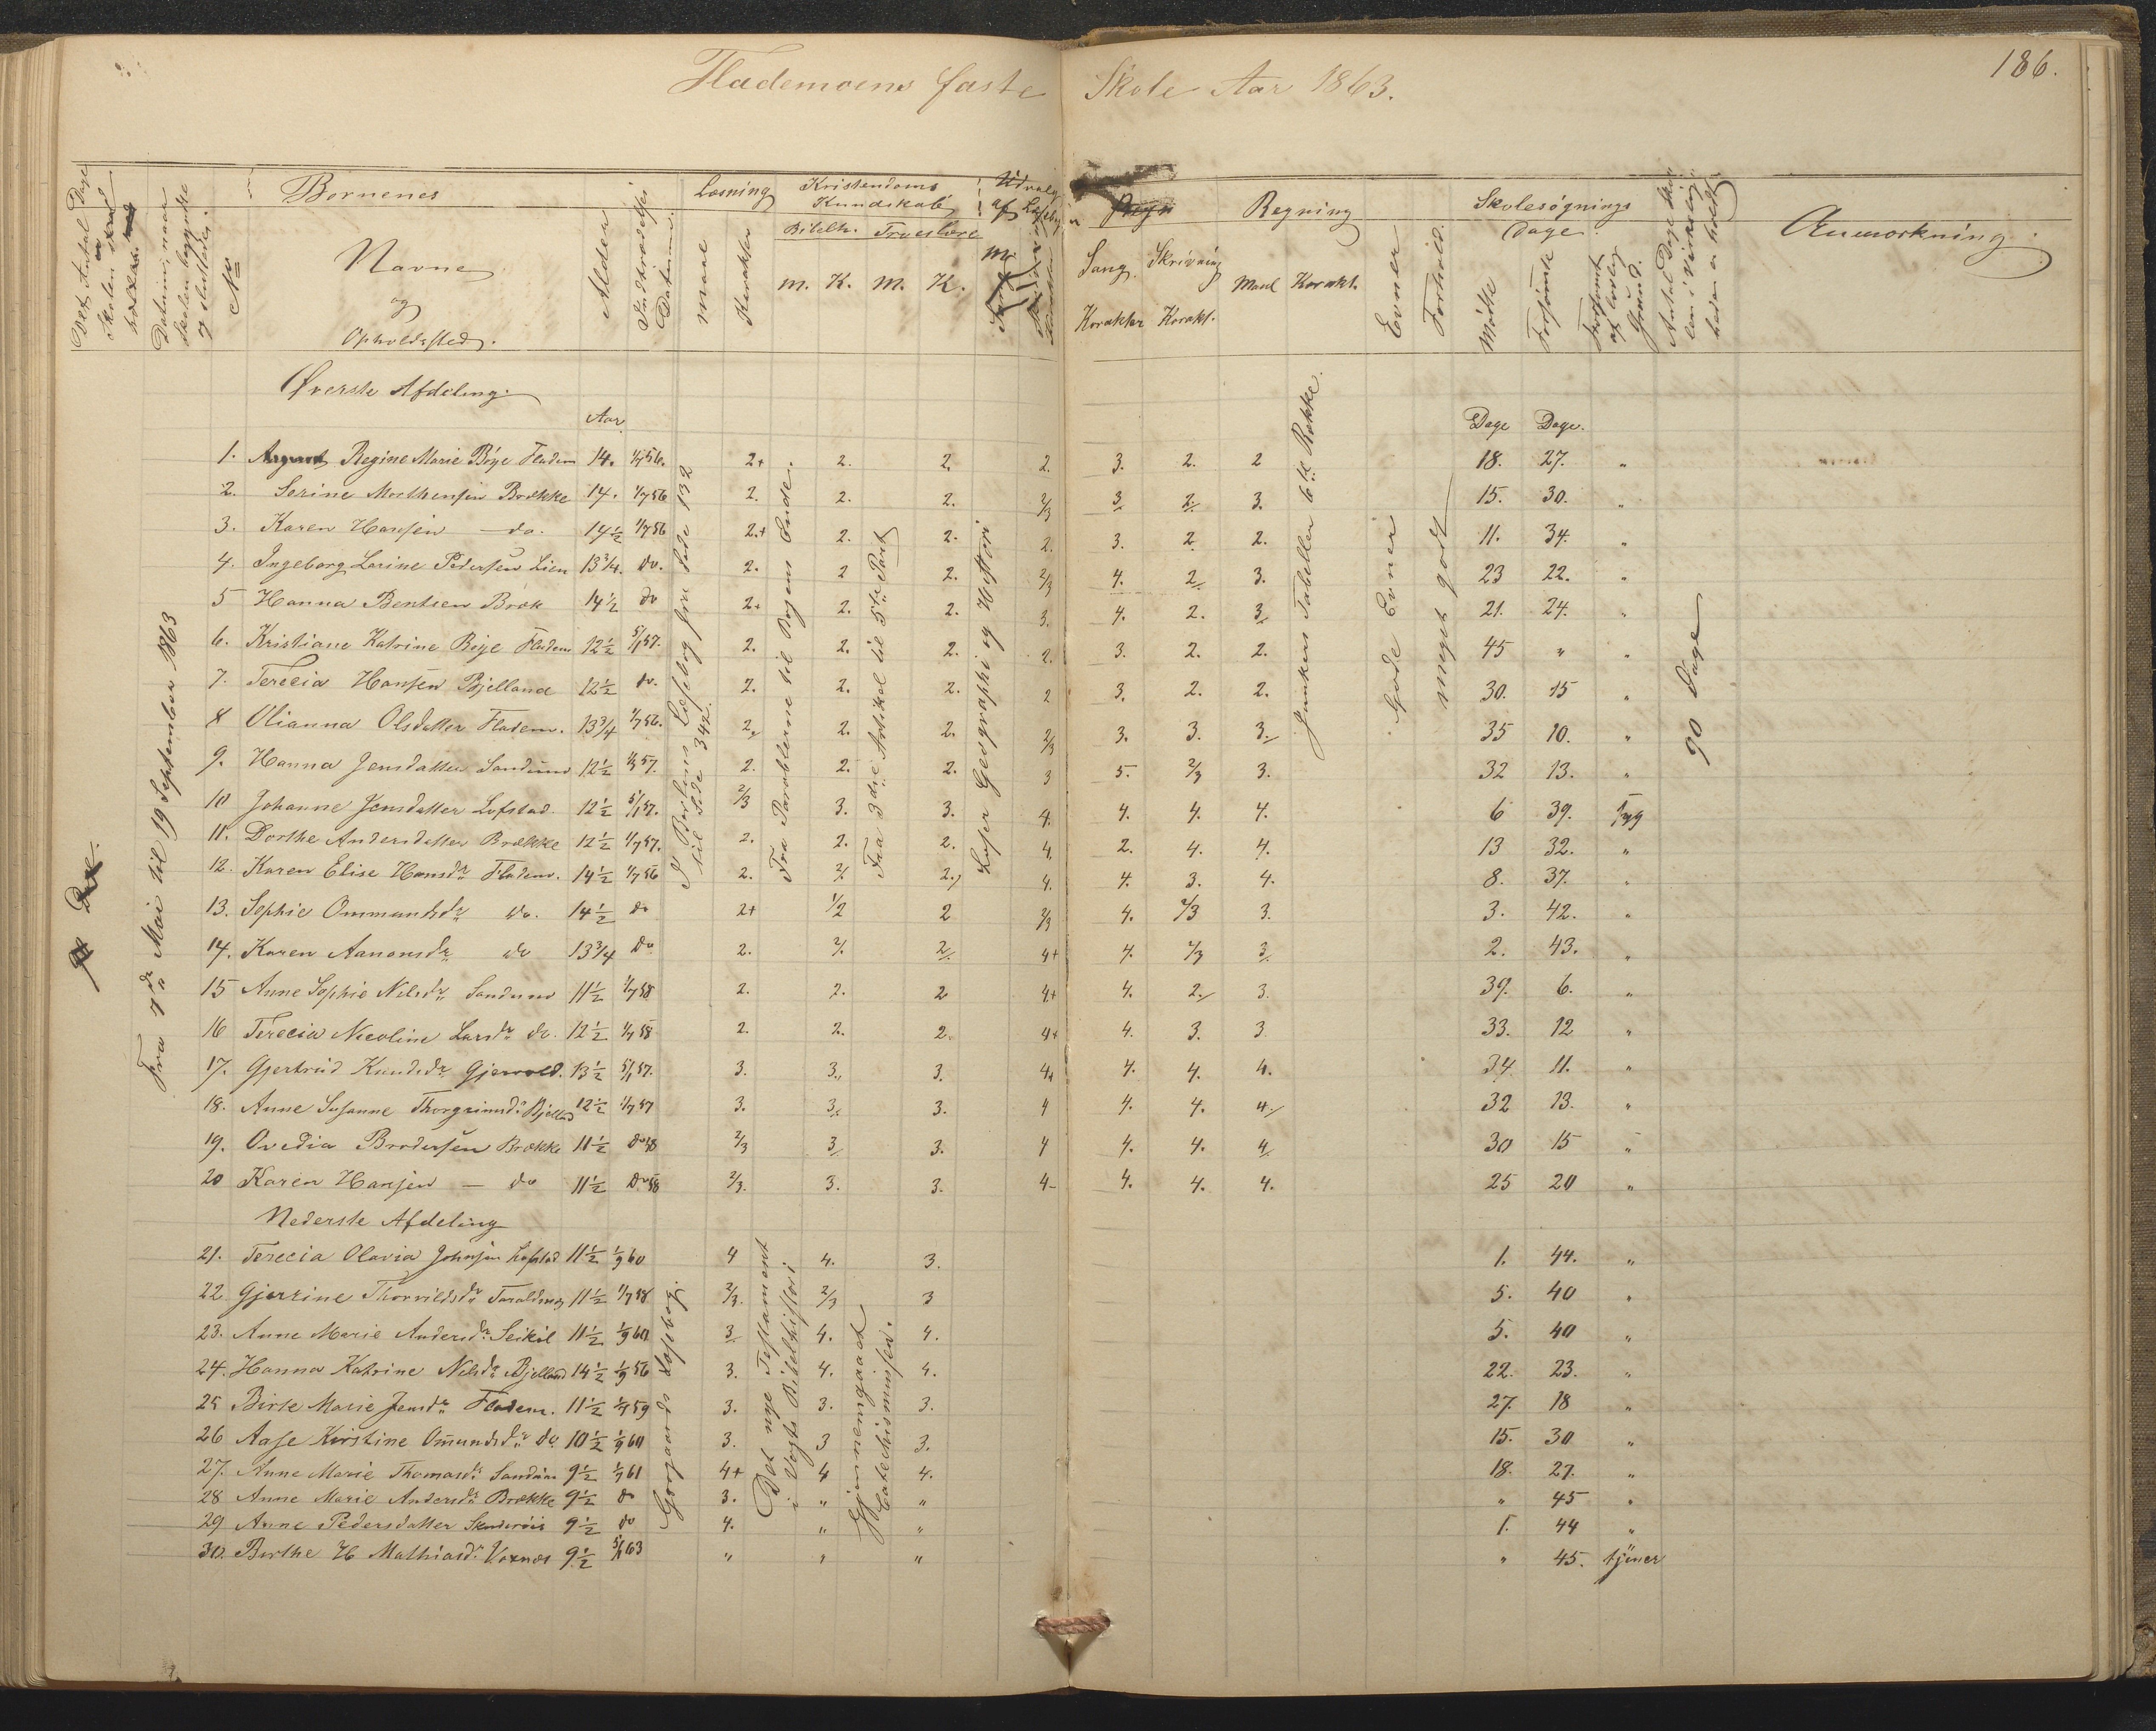 186.
Flademoens faste Skole Aar 1863.
Det Antal Dage Skolen skal holdes
Datum, naar Skolen begyndte og sluttedes.
No
Børnenes Navne og Opholdssted.
Alder
Indtrædelses Datum.
Læsning
maal Karakter
Kristendoms Kundskab
Bibelh. Troeslære
m. K. m. K.
Udvalg af Læseb.
Sang. Skrivning
Karakter Karakt.
Regning
Maal Karakt.
Evner
Forhold.
Skolesøgnings Dage
Mødte Forsømte
Anmærkning
Øverste Afdeling.
Aar
Dage Dage.
1. Regine Marie Bøye Fladem 14. 1/7 56. 2+ 2. 2. 2. 3. 2. 2 18. 27. "
2. Serine Mathensen Brække 14. 1/7 56 2. 2. 2. 2/3 3 2 3. 15. 30. "
3. Karen Hansen — do. 14½ 1/7 56 2+ 2. 2. 2. 3. 2 2. 11. 34. "
4. Ingeborg Larine Pedersen Lien 13¾. do. 2. 2 2. 2/3 4. 2 3. 23 22. "
5 Hanna Bentsen Bræk 14½ do 2+ 2. 2. 3. 4. 2. 3 21. 24. "
6. Kristiane Katrine Bøye Fladem 12½ 5/1 57. 2. 2. 2. 2. 3. 2. 2. 45 " "
7. Terecia Hansen Bjelland 12½ do. 2. 2. 2. 2 3. 2. 2. 30. 15 "
8 Olianna Olsdatter Fladem. 13¾ 1/7 56. 2. 2. 2. 2/3 3. 3. 3. 35 10. "
9. Hanna Jensdatter Sandum 12½ 1/7 57. 2. 2. 2. 3 5. 2/3 3. 32 13. "
10 Johanne Jensdatter Lofstad. 12½ 5/1 57. 2/3 3. 3. 4. 4. 4. 4. 6 39. syg
11. Dorthe Andersdatter Brække 12½ 1/7 57. 2. 2. 2. 4. 2. 4. 4. 13 32. "
12. Karen Elise Hansdr Fladem. 14½ 1/7 56 2. 2 2. 4. 4. 3. 4. 8. 37. "
13. Sophie Ommundsdr do. 14½ do 2+ 1/2 2 2/3 4. 2/3 3. 3. 42. "
14. Karen Aanonsdr do 13¾ do 2. 2. 2 4+ 4. 2/3 3 2. 43. "
15 Anne Sophie Nilsdr Sandum 11½ 1/7 58 2. 2. 2 4+ 4. 2. 3. 39. 6. "
16 Terecia Nicoline Larsdr do. 12½ 1/7 58 2. 2. 2. 4+ 4. 3. 3. 33. 12 "
17. Gjertrud Knudsdr Gjervold. 13½ 5/1 57. 3. 3. 3. 4+ 4. 4. 4. 34 11. "
18. Anne Susanne Thorgrimsdr Bjelland 12½ 1/7 57 3. 3. 3. 4 4. 4. 4. 32 13. "
19. Ovedia Brodersen Brække 11½ do 58 2/3 3 3. 4 4. 4. 4 30 15 "
20 Karen Hansen — do 11½ do 58 2/3. 3. 3. 4- 4. 4. 4. 25 20 "
Nederste Afdeling
21. Terecia Olavia Johnsen Lofstad 11½ 1/9 60 4 4. 3. 1. 44. "
22 Gjerrine Thorvildsdr Taraldmoj 11½ 1/7 58 2/3. 2/3 3 5. 40 "
23. Anne Marie Andersdr Seikil 11½ 1/9 60 3 4. 4. 5. 40 "
24. Hanna Katrine Nilsdr Bjelland 14½ 1/9 56 3. 4. 4. 22. 23. "
25 Birte Marie Jensdr Fladem. 11½ 1/7 59 3. 3. 3. 27. 18 "
26 Aase Kirstine Omundsdr do 10½ 1/9 60 3. 3 3. 15. 30 "
27. Anne Marie Thomasdr Sandum 9½ 1/7 61 4+ 4 4. 18. 27. "
28 Anne Marie Andersdr Brække 9½ do 3. " " " 45 "
29 Anne Pedersdatter 9½ do 4. " " 1. 44 "
30. Berthe H Mathiasdr Voxnes 9½ 5/1 63 " " " " 45. tjener
Fra 7de Mai til 19 September 1863
Læsebog fra Side 132 til Side 342.
Fra Parablerne til Bogens Ende.
Fra 3die Artikel til 5te Part
Læser Geographi og Histori
Junkers Tabeller 6te Række.
Gode Evner
meget godt
90 Dage
Læsebog
Det nye Testament i Vogts Bibelhistori
Gjennemgaaet Catechismusen.